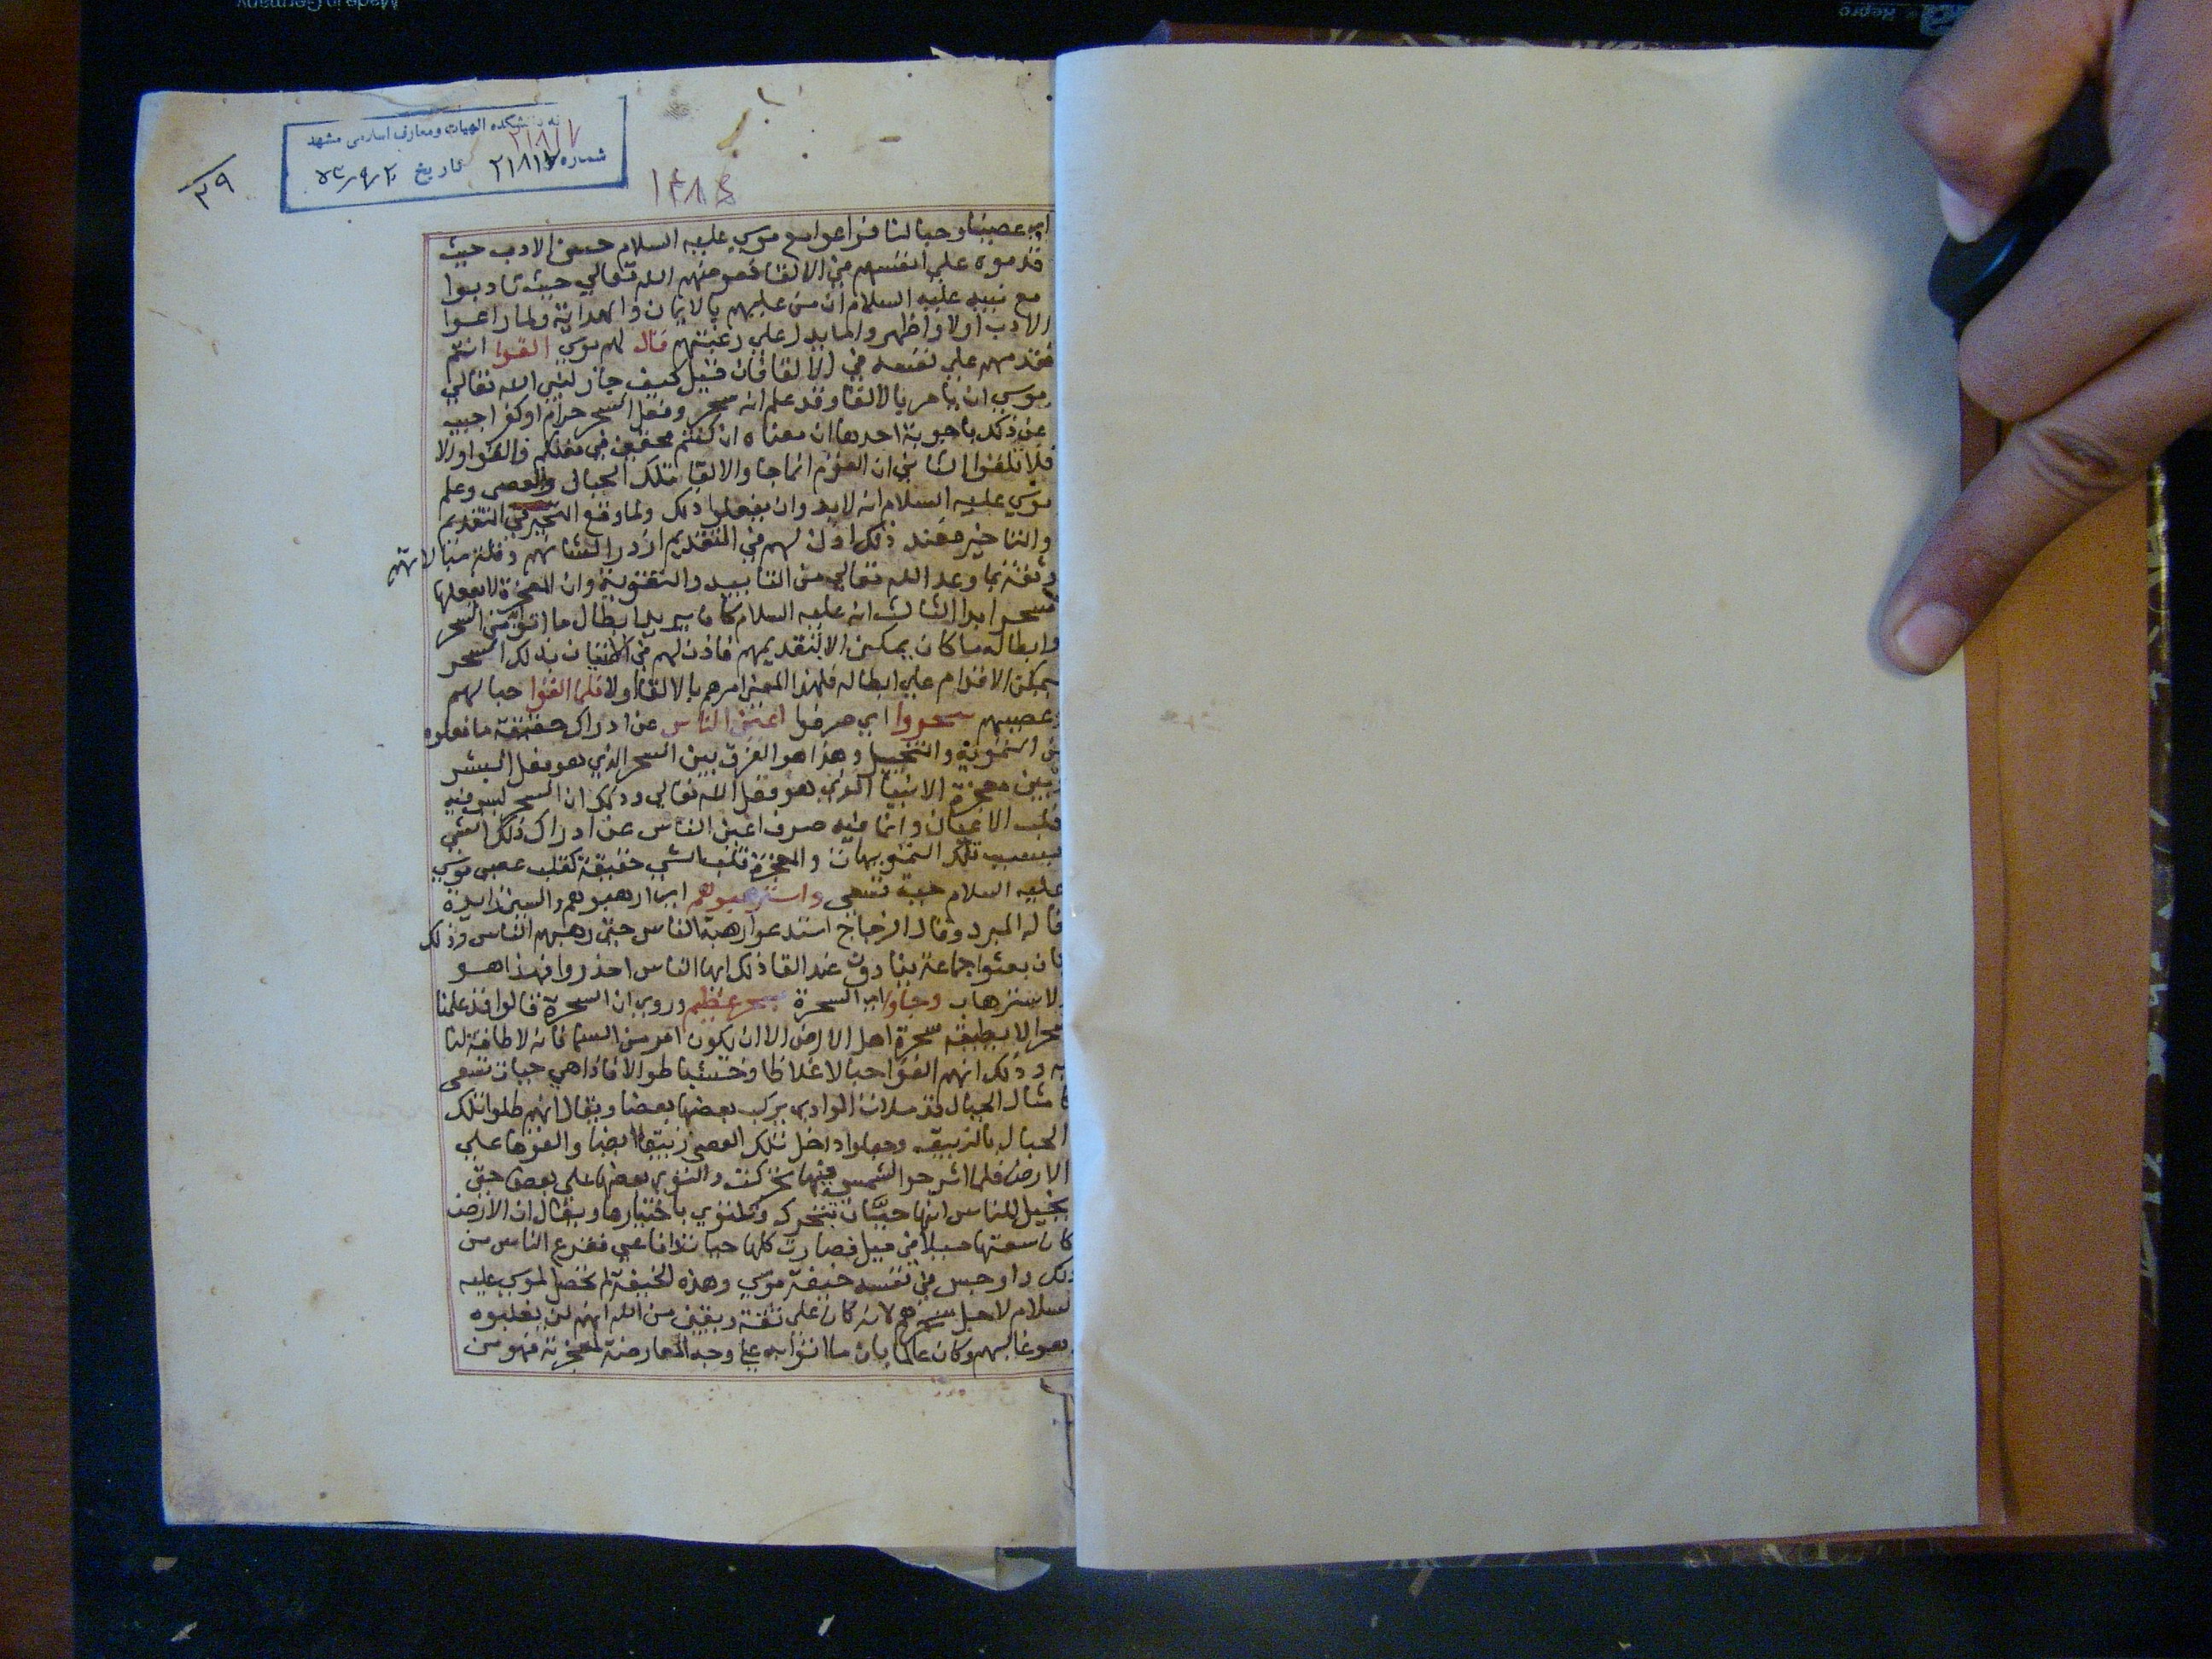 شكده الهيات ومعارف اسلامى مشهد
شماره ٢١٨١٧ تاريخ
٢١٨١٧
٣٩
اي عصينا وحبالنا فراعوا مع موسي عليه السلام حسن الادب حيث
قدموه علي انفسهم في الالقا فعوضهم الله تعالي حيث تادبوا
مع نبيه عليه السلام ان من عليهم بالايمان والهداية ولما راعوا
الادب اولا واظهروا ما يدل علي رغبتهم قال لهم موسي القوا انتم
فقدمهم علي نفسه في الالقا فان قيل كيف جاز لنبي الله تعالي
موسي ان يامر بالالقا وقد علم انه سحر وفعل السحر حرام او كفر اجيب
عن ذلك باجوبة احدها ان معناه ان كنتم محقين في فعلكم فالقوا والا
فلا تلقوا الثاني ان القوم انما جاوا لالقا تلك الحبال والعصي وعلم
موسي عليه السلام انه لا بد وان يفعلوا ذلك ولما وقع التخيير في التقديم
والتاخير فعند ذلك اذن لهم في التقديم ازدرا لشانهم وقلة مبالاتهم
وثقة بما وعد الله تعالي من التاييد والتقوية وان المعجزة لا يغلبها
سحر ابدا الثالث انه عليه السلام كان يريد ابطال ما اتوا به من السحر
وابطاله ما كان يمكن الا بتقديمهم فاذن لهم في الاتيان بذلك السحر
ليمكن الاقدام علي ابطاله فلهذا المعني امرهم بالالقا اولا فلما القوا حبالهم
وعصيهم سحروا اي صرفوا اعين الناس عن ادراك حقيقة ما فعلوه
من التمويه والتخييل وهذا هو الفرق بين السحر الذي هو فعل البشر
وبين معجزة الانبيا الذي هو فعل الله تعالي وذلك ان السحر ليس فيه
قلب الاعيان وانما فيه صرف اعين الناس عن ادراك ذلك الشي
بسبب تلك التمويهات والمعجزة قلب الشي حقيقة كقلب عصي موسي
عليه السلام حية تسعي واسترهبوهم اي ارهبوهم والسين زايدة
قاله المبرد وقال الزجاج استدعوا رهبة الناس حتي رهبهم الناس وذلك
بان بعثوا جماعة ينادون عند القا ذلك ايها الناس احذروا فهذا هو
الاسترهاب وجاوا اي السحرة بسحر عظيم وروي ان السحرة قالوا قد علمنا
سحرا لا يطيقه سحرة اهل الارض الا ان يكون امر من السما فانه لا طاقة لنا
به وذلك انهم القوا حبالا غلاظا وخشبا طوالا فاذا هي حيات تسعي
كامثال الجبال قد ملات الوادي يركب بعضها بعضا ويقال انهم طلوا تلك
الحبال بالزيبق وجعلوا داخل تلك العصي زيبقا ايضا والقوها علي
الارض فلما اثر حر الشمس فيها تحركت والتوي بعضها علي بعض حتي
يخيل للناس انها حيات تتحرك وتلتوي باختيارها ويقال ان الارض
كان سعتها ميلا في ميل فصارت كلها حيات وافاعي ففزع الناس من
ذلك واوجس في نفسه خيفة موسي وهذه الخيفة لم تحصل لموسي عليه
السلام لاجل سحرهم لانه كان علي ثقة ويقين من الله انهم لن يغلبوه
وهو غالبهم وكان عالما بان ما اتوا به علي وجه المعارضة لمعجزته فهو من